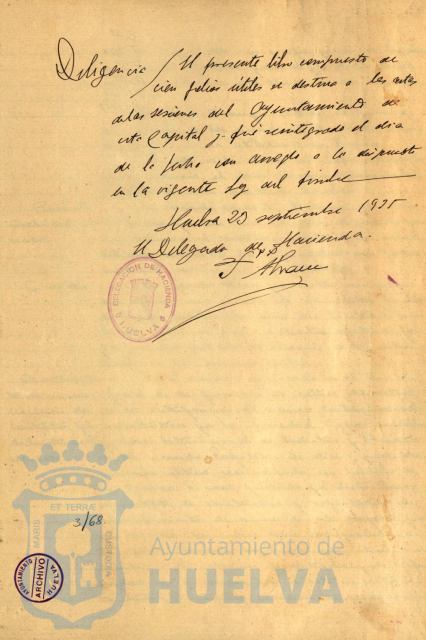 Diligencia / El presente libro compuesto de
cien folios útiles se destina a las actas
de las sesiones del Ayuntamiento de
esta Capital y fué reintegrado el día
de la fecha con arreglo a lo dispuesto
en la vigente Ley del timbre
Huelva 23 septiembre 1935
El Delegado de Hacienda.
DELEGACION DE HACIENDA
HUELVA
ET TERRÆ
MARIS
CUSTODIA
3/68
AYUNTAMIENTO
ARCHIVO
HUELVA
Ayuntamiento de
HUELVA